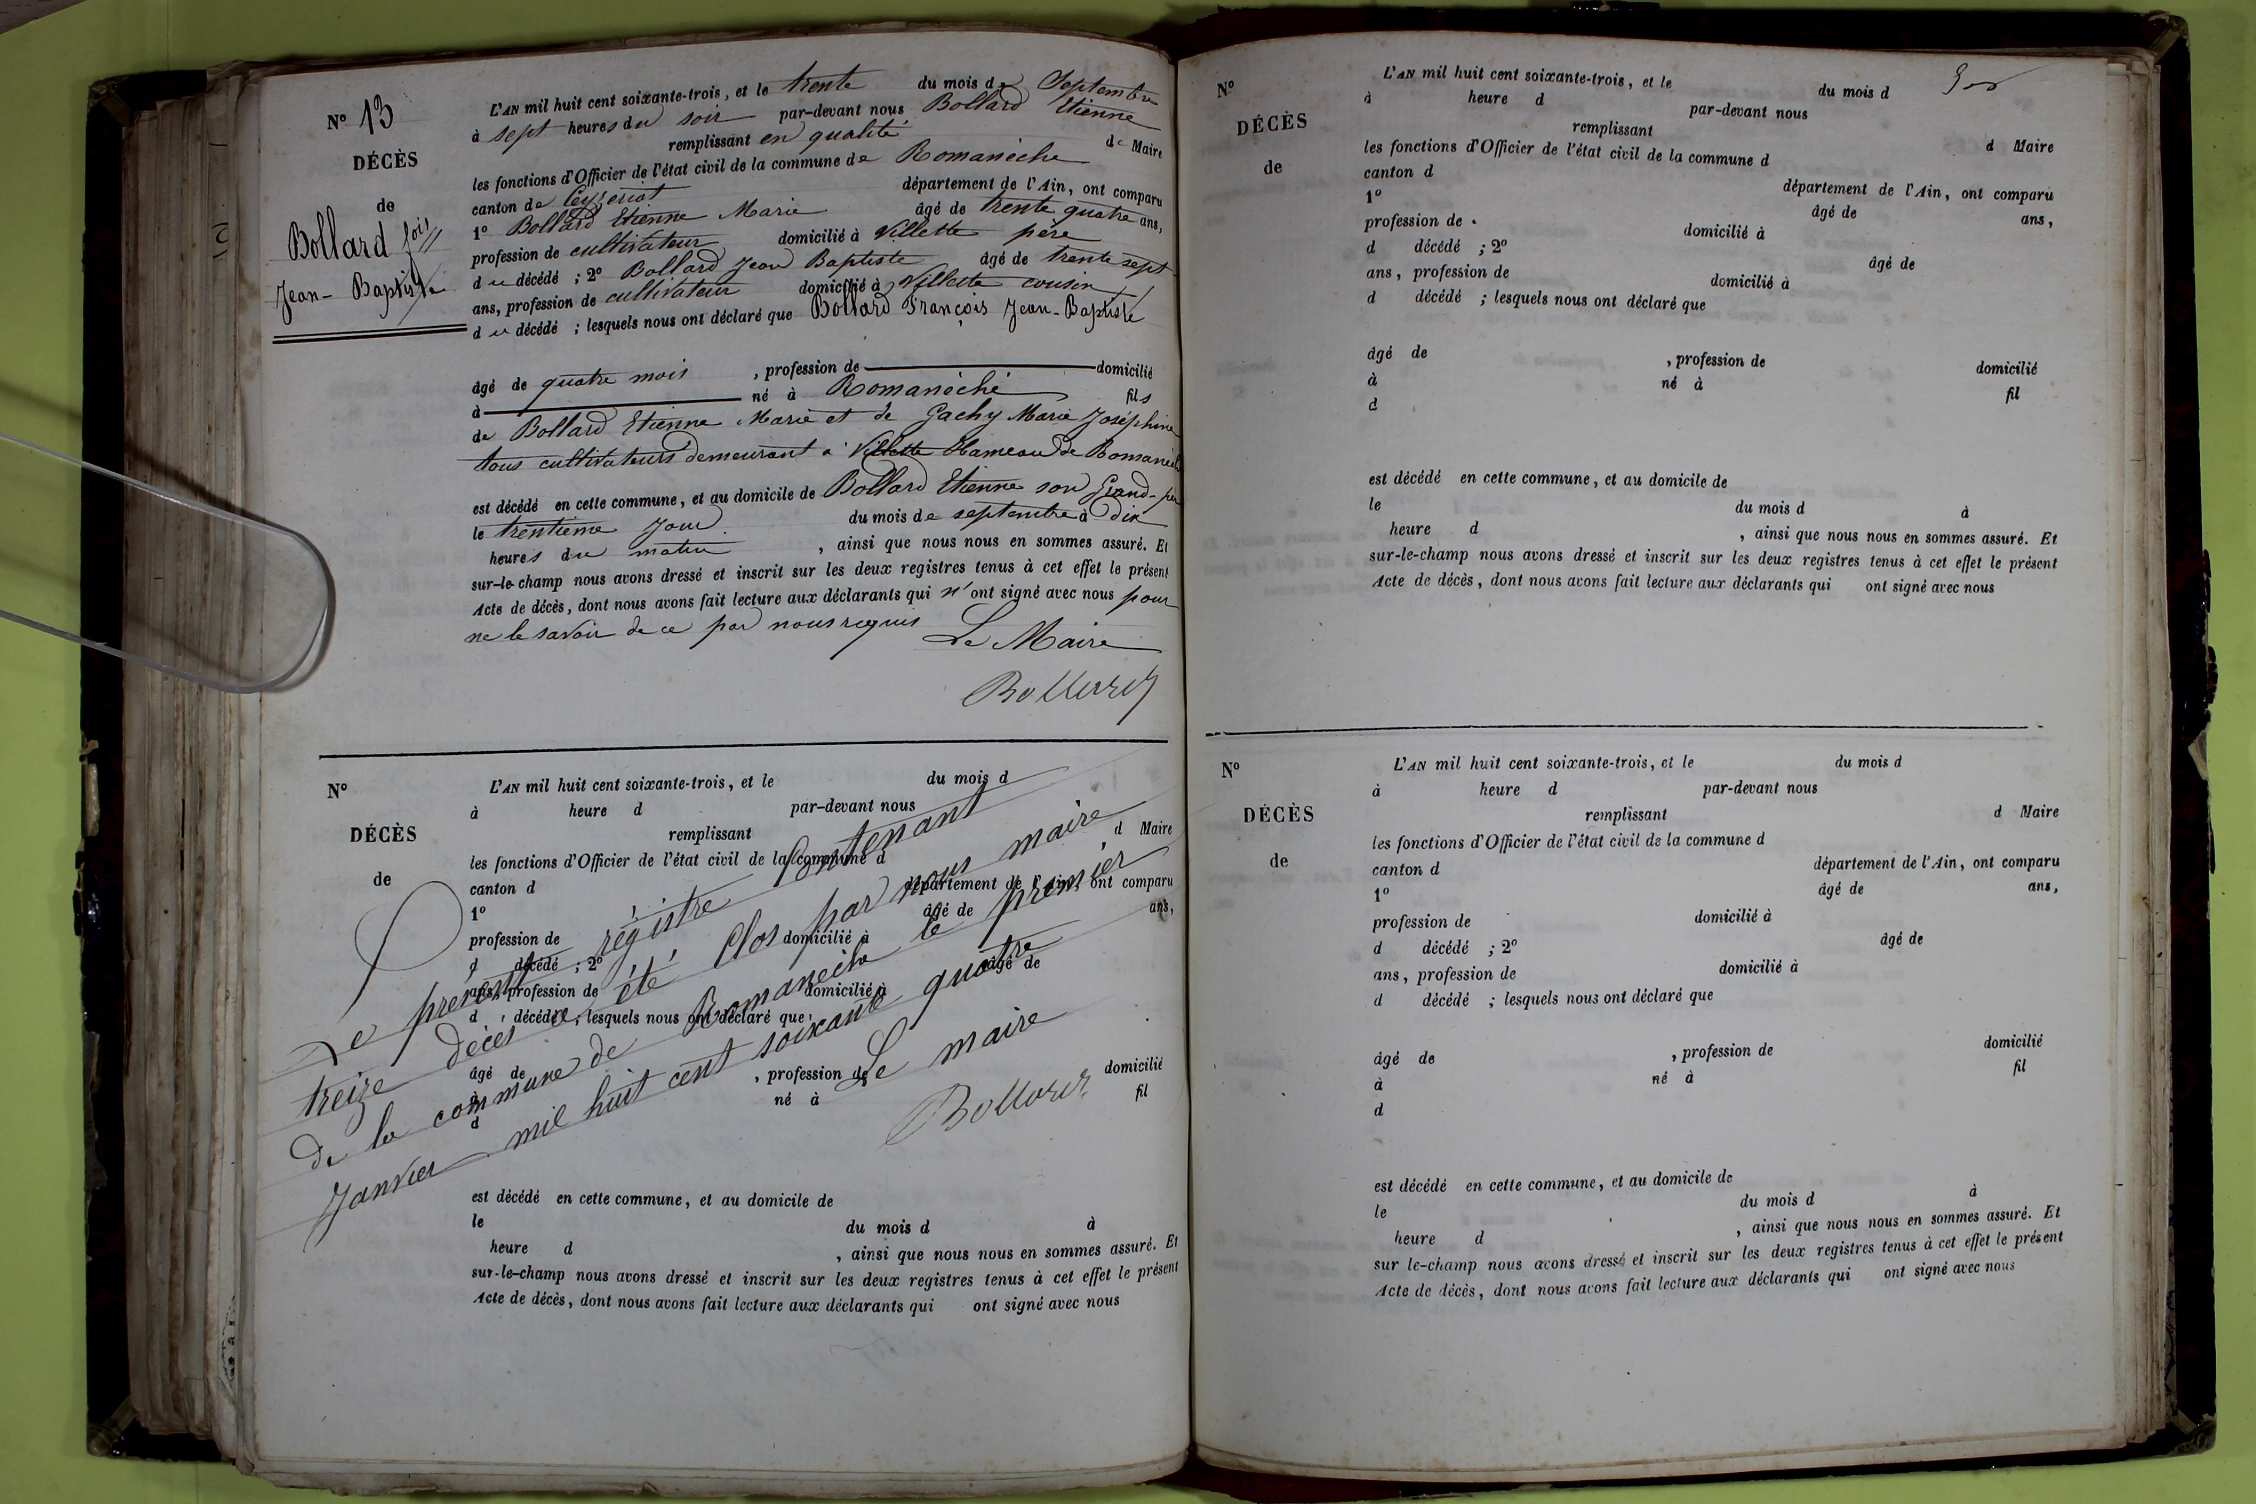 N° 13
DÉCÈS
de
Bollard fois
Jean-Baptiste
L'AN mil huit cent soixante-trois, et le trente du mois de Septembre
à sept heures du soir par-devant nous Bollard Etienne
remplissant en qualité de Maire
les fonctions d'Officier de l'état civil de la commune de Romanèche
canton de Ceyzériat département de l'Ain, ont comparu
1° Bollard Etienne Marie âgé de trente quatre ans,
profession de cultivateur domicilié à Villette père
du décédé ; 2° Bollard Jean Baptiste âgé de trente sept
ans, profession de cultivateur domicilié à Villette cousin
du décédé ; lesquels nous ont déclaré que Bollard François Jean-Baptiste
âgé de quatre mois , profession de domicilié
à né à Romanèche fils
de Bollard Etienne Marie et de Gachy Marie Joséphine
tous cultivateurs demeurant à Villette Hameau de Romanèche
est décédé en cette commune, et au domicile de Bollard Etienne son Grand-père
le trentième jour du mois de septembre à dix
heures du matin , ainsi que nous nous en sommes assuré. Et
sur-le-champ nous avons dressé et inscrit sur les deux registres tenus à cet effet le présent
Acte de décès, dont nous avons fait lecture aux déclarants qui n'ont signé avec nous pour
ne le savoir de ce par nous requis Le Maire
Bollard
N°
DÉCÈS
de
L'AN mil huit cent soixante-trois, et le du mois d
à heure d par-devant nous
remplissant d Maire
les fonctions d'Officier de l'état civil de la commune d
canton d département de l'Ain, ont comparu
1° âgé de ans,
profession de domicilié à
d décédé ; 2° âgé de
ans, profession de domicilié à
d décédé ; lesquels nous ont déclaré que
âgé de , profession de domicilié
à né à fil
d
Le présent régistre Contenant
treize décès a été Clos par nous maire
De la commune de Romanèche le premier
Janvier mil huit cent soixante quatre
Le maire
Bollard
est décédé en cette commune, et au domicile de
le du mois d à
heure d , ainsi que nous nous en sommes assuré. Et
sur-le-champ nous avons dressé et inscrit sur les deux registres tenus à cet effet le présent
Acte de décès, dont nous avons fait lecture aux déclarants qui ont signé avec nous
N°
DÉCÈS
de
L'AN mil huit cent soixante-trois, et le du mois d
à heure d par-devant nous
remplissant d Maire
les fonctions d'Officier de l'état civil de la commune d
canton d département de l'Ain, ont comparu
1° âgé de ans,
profession de domicilié à
d décédé ; 2° âgé de
ans, profession de domicilié à
d décédé ; lesquels nous ont déclaré que
âgé de , profession de domicilié
à né à fil
d
est décédé en cette commune, et au domicile de
le du mois d à
heure d , ainsi que nous nous en sommes assuré. Et
sur-le-champ nous avons dressé et inscrit sur les deux registres tenus à cet effet le présent
Acte de décès, dont nous avons fait lecture aux déclarants qui ont signé avec nous
N°
DÉCÈS
de
L'AN mil huit cent soixante-trois, et le du mois d
à heure d par-devant nous
remplissant d Maire
les fonctions d'Officier de l'état civil de la commune d
canton d département de l'Ain, ont comparu
1° âgé de ans,
profession de domicilié à
d décédé ; 2° âgé de
ans, profession de domicilié à
d décédé ; lesquels nous ont déclaré que
âgé de , profession de domicilié
à né à fil
d
est décédé en cette commune, et au domicile de
le du mois d à
heure d , ainsi que nous nous en sommes assuré. Et
sur le-champ nous avons dressé et inscrit sur les deux registres tenus à cet effet le présent
Acte de décès, dont nous avons fait lecture aux déclarants qui ont signé avec nous